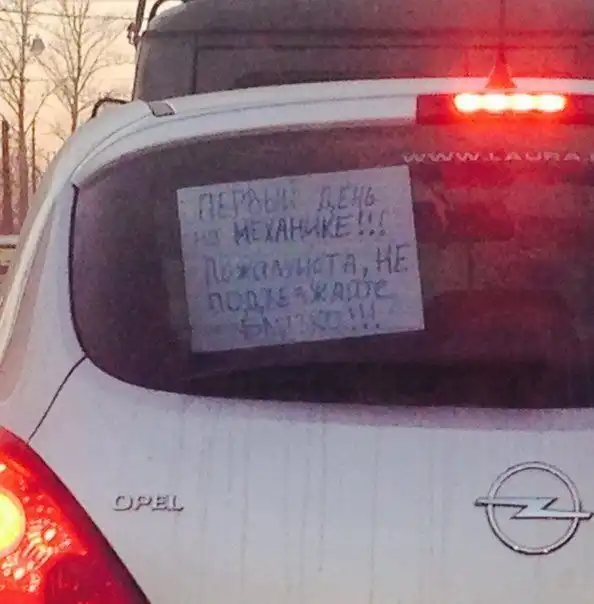 WWW.LAURA.
ПЕРВЫЙ ДЕНЬ
на МЕХАНИКЕ!!!
Пожалуйста, НЕ
ПОДЪЕЗЖАЙТЕ
БЛИЗКО!!!
OPEL